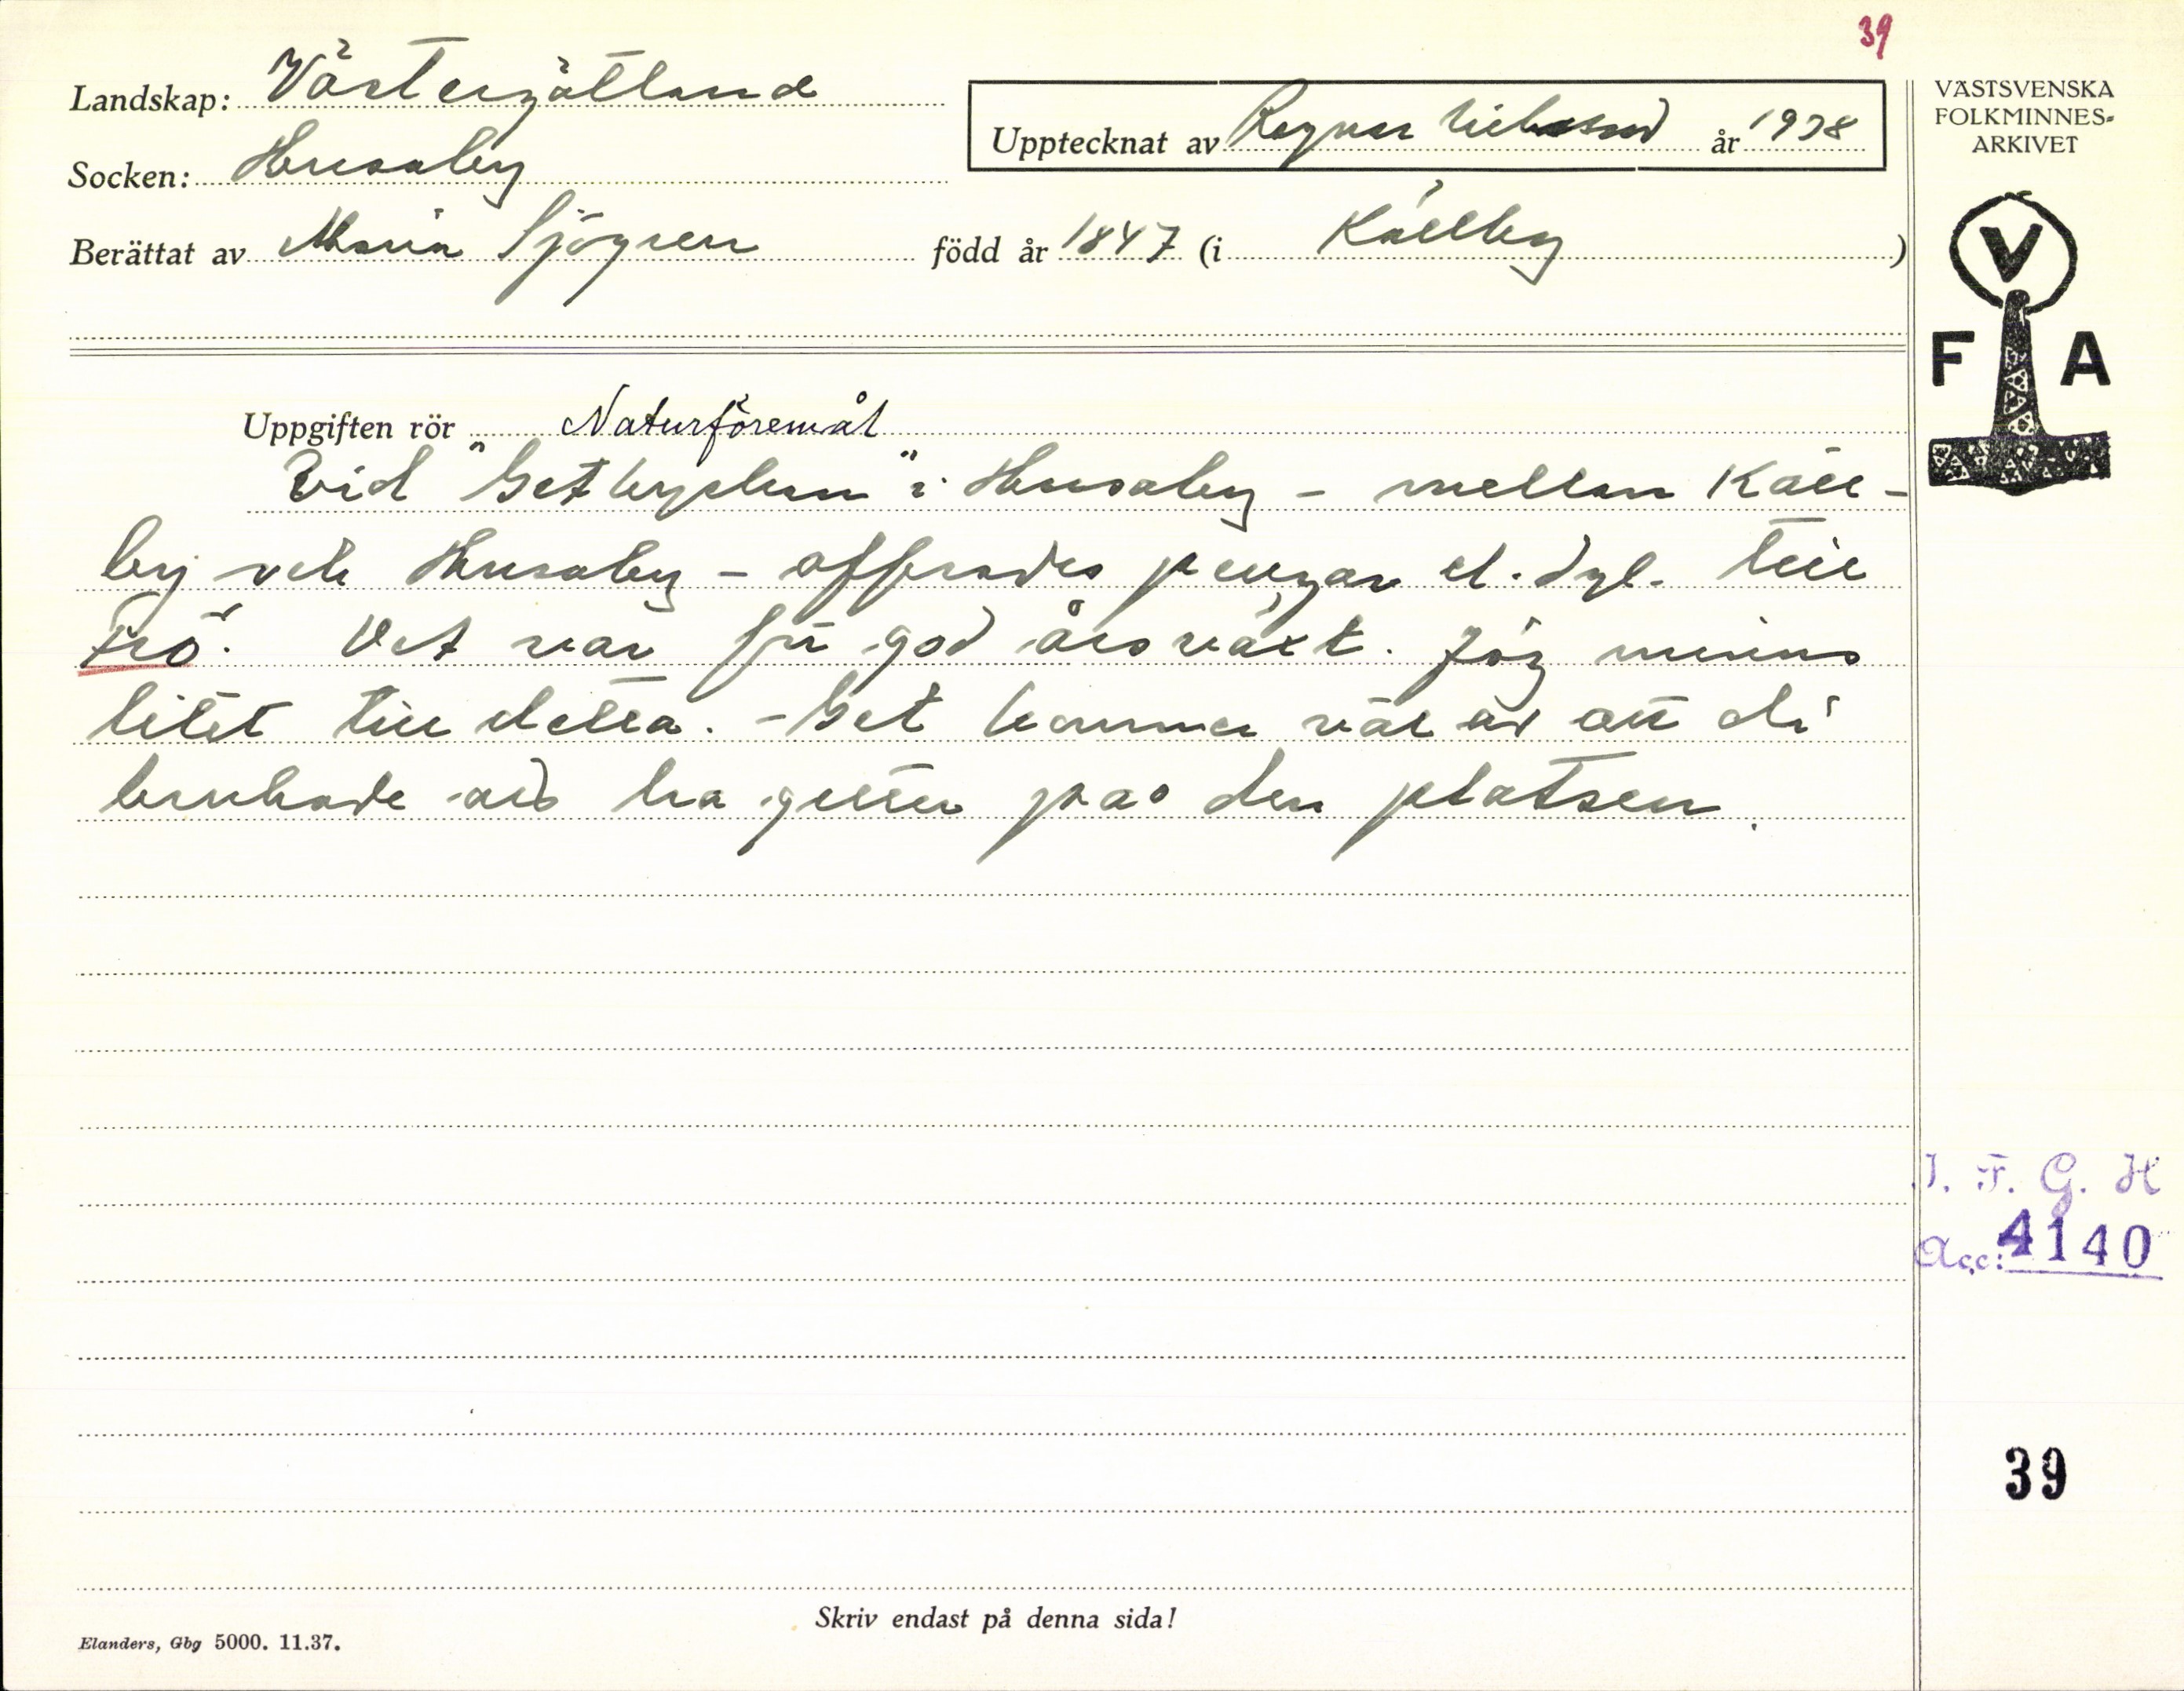 39
Landskap: Västergötland
Socken: Husaby
Berättat av Maria Sjögren född år 1847 (i Källby)
Upptecknat av Ragnar Nilsson år 1938
VÄSTSVENSKA
FOLKMINNES-
ARKIVET
V
F A
Uppgiften rör Naturföremål
Vid "Getbyslun" i Husaby – mellan Käll-
by och Husaby – offrades pengar el. dyl. till
Frö. Det var för god årsväxt. Jag minns
litet till detta. – Get kommer väl av att di
brukade at ha getter på den platsen.
I. F. G. H
Acc: 4140
39
Skriv endast på denna sida!
Elanders, Gbg 5000. 11.37.